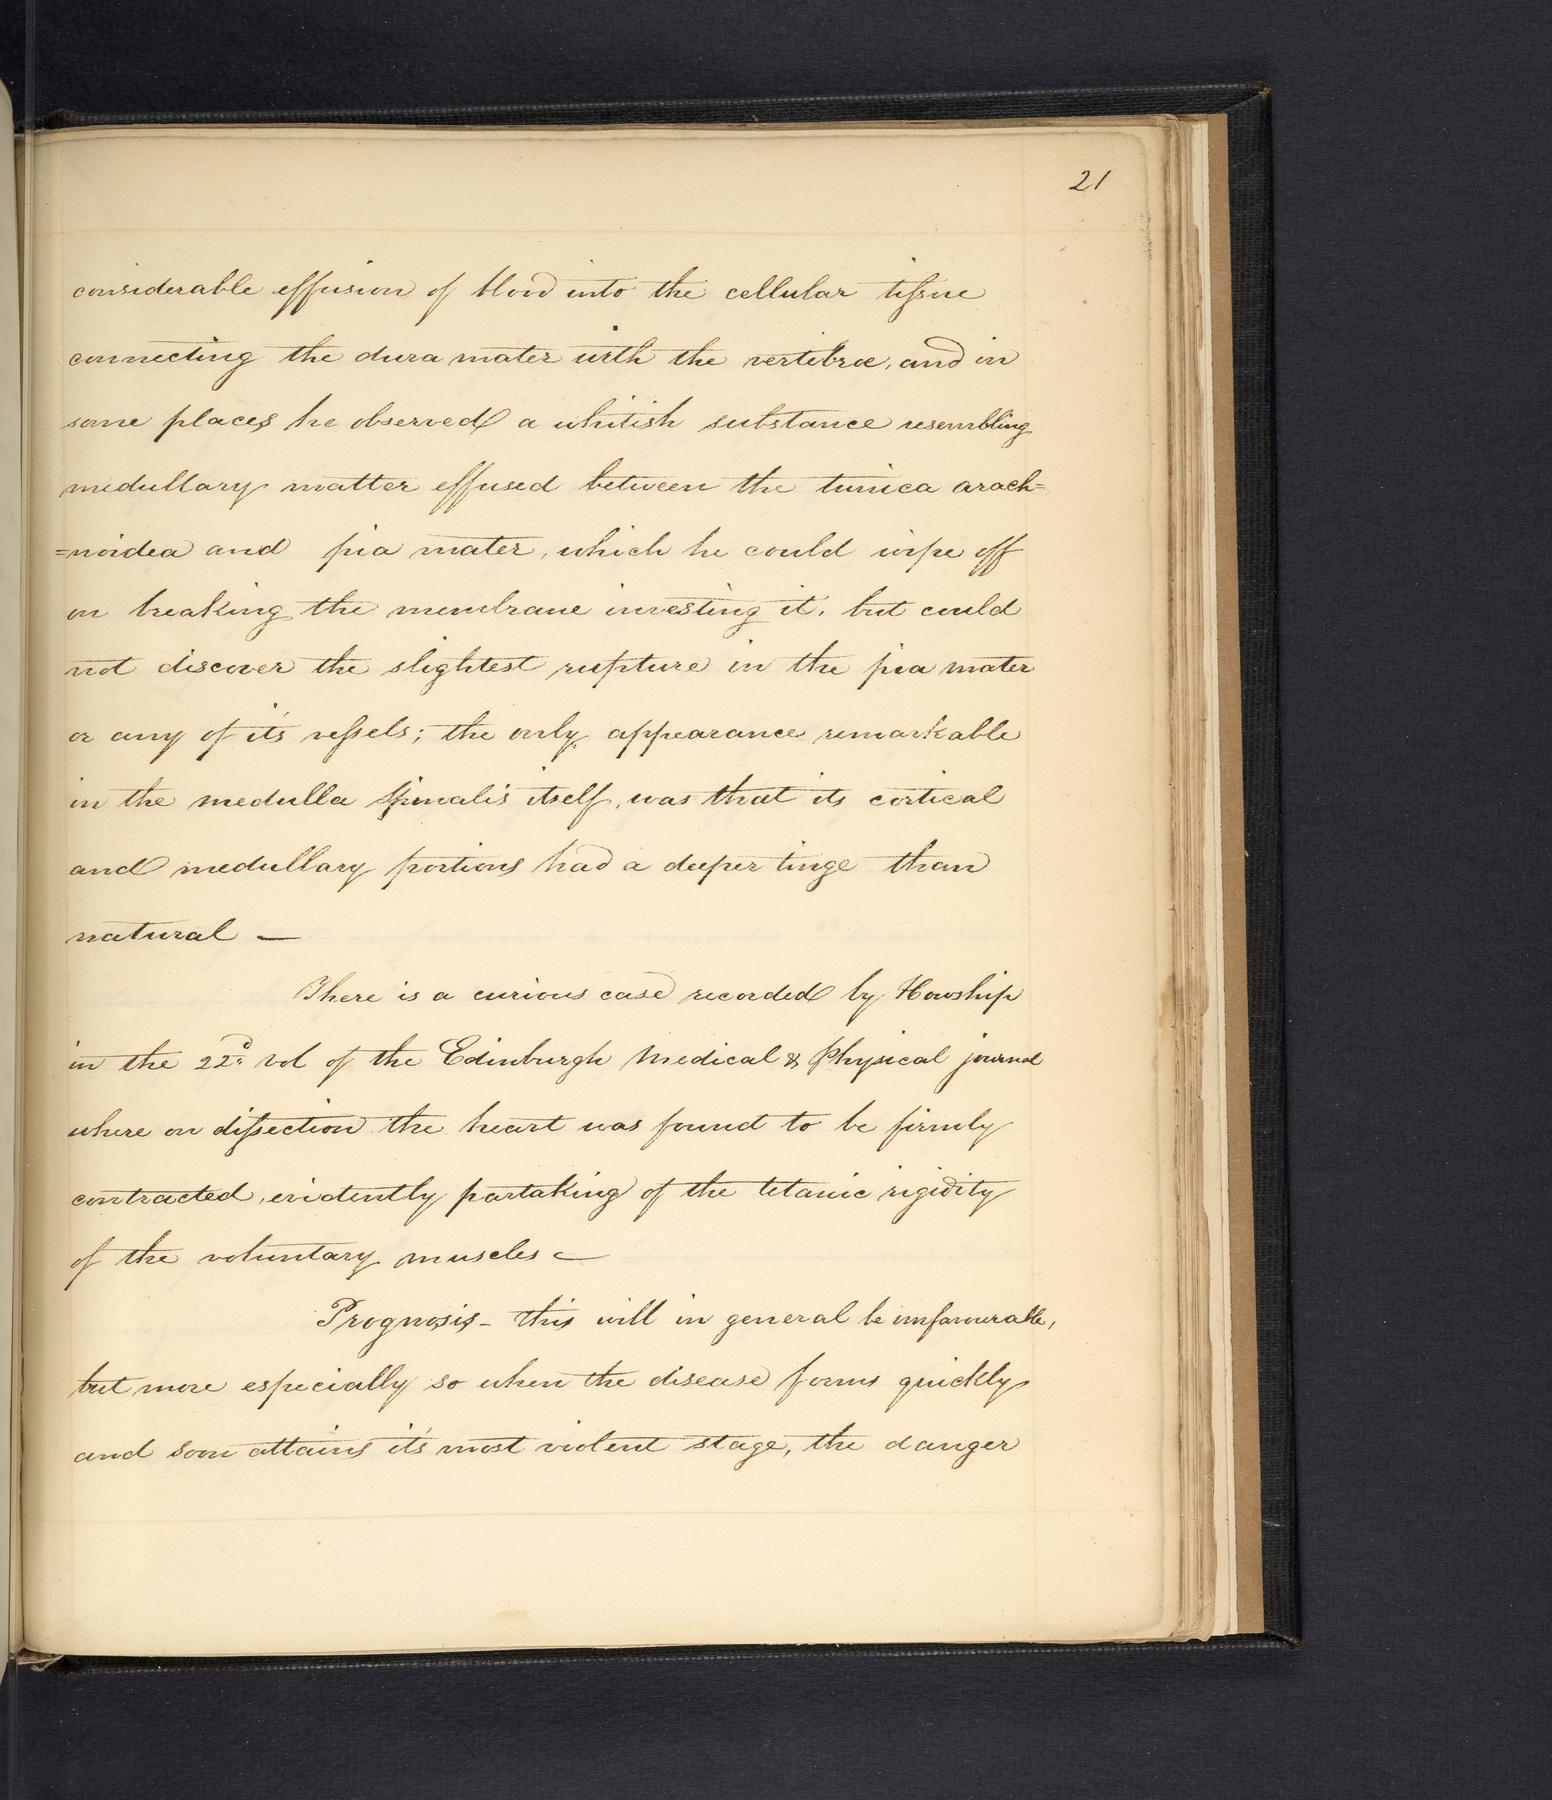 21
considerable effusion of blood into the cellular tiſsue
connecting the dura mater with the vertebræ, and in
some places he observed a whitish substance resembling
medullary matter effused between the tunica arach=
=noidea and pia mater, which he could wipe off
on breaking the membrane investing it, but could
not discover the slightest rupture in the pia mater
or any of it's veſsels; the only appearance remarkable
in the medulla Spinalis itself, was that its cortical
and medullary portions had a deeper tinge than
natural —
There is a curious case recorded by Howship
in the 22d vol of the Edinburgh Medical & Physical journal
where on diſsection the heart was found to be firmly
contracted, evidently partaking of the tetanic rigidity
of the voluntary muscles —
Prognosis - this will in general be unfavourable,
but more especially so when the disease forms quickly
and soon attains it's most violent stage, the danger